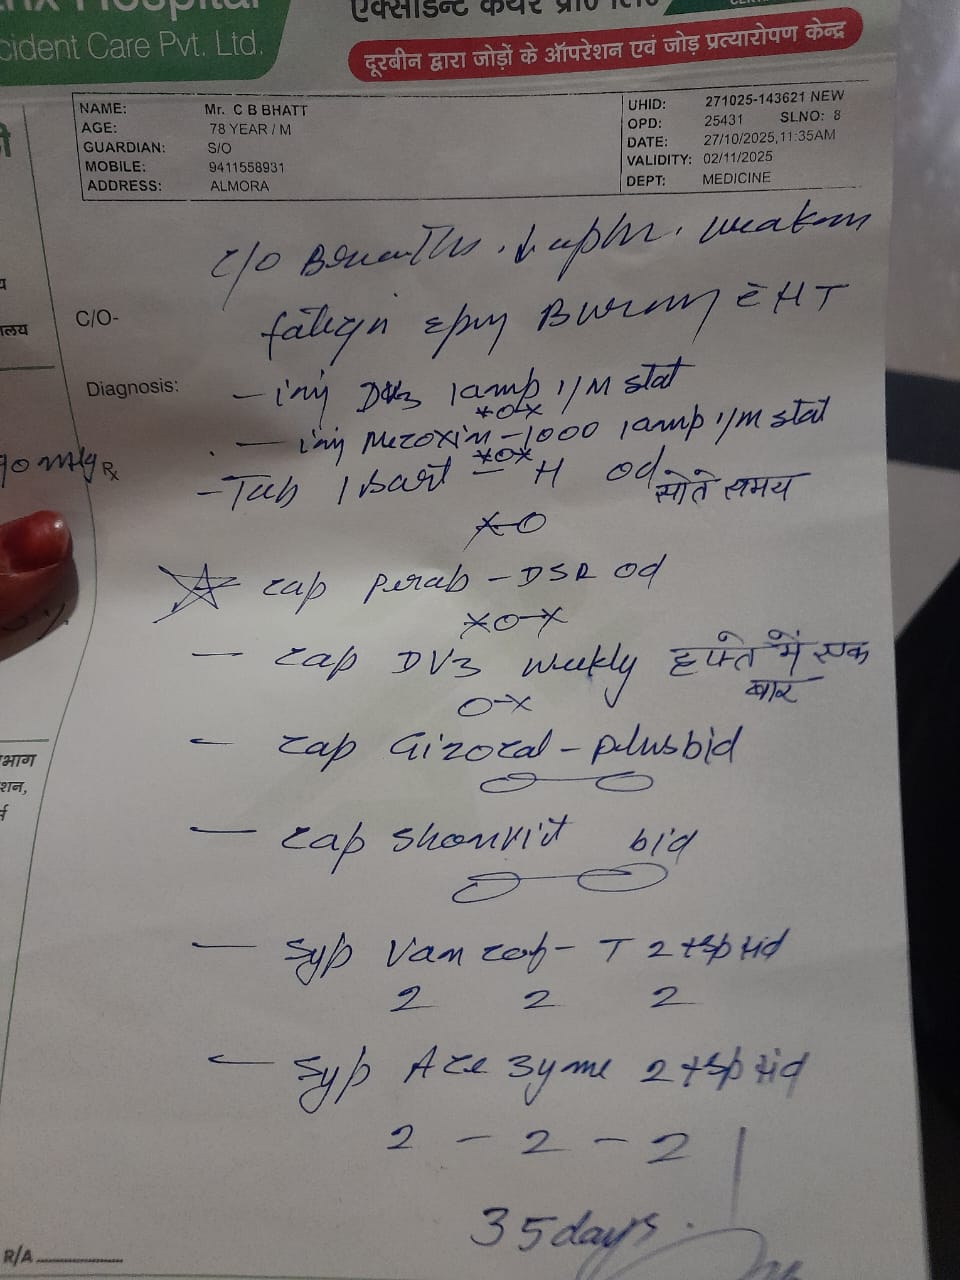 Hospital
cident Care Pvt. Ltd.
एक्सीडेन्ट केयर प्रा० लि०
दूरबीन द्वारा जोड़ों के ऑपरेशन एवं जोड़ प्रत्यारोपण केन्द्र
NAME: Mr. C B BHATT
AGE: 78 YEAR / M
GUARDIAN: S/O
MOBILE: 9411558931
ADDRESS: ALMORA
UHID: 271025-143621 NEW
OPD: 25431 SLNO: 8
DATE: 27/10/2025, 11:35AM
VALIDITY: 02/11/2025
DEPT: MEDICINE
c/o
C/O-
EHT
Diagnosis:
- inj DV3 1amp I/M stat
*o-x
- inj Mezoxin-1000 1amp I/M stat
*o*
Rx
- Tab H od सोते समय
x-o
cap perab-DSR od
xo-x
- cap DV3 weekly हफ्ते में एक
बार
o-x
- cap Gizocal-plus bid
- cap bid
- Syp T 2 tsp tid
2 2 2
- Syp Ace zyme 2 tsp tid
2 - 2 - 2
35 days.
भाग
शन,
R/A